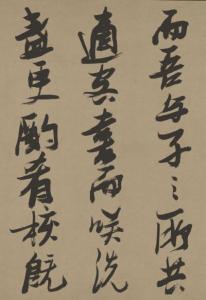 而吾與子之所共
適客喜而笑洗
盞更酌肴核既